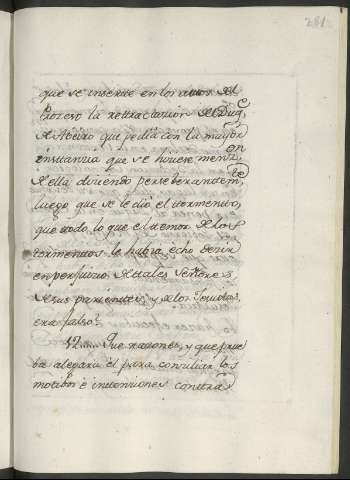 281
que se inserte en los autos del
Proceso la rettractacion del Duq.e
de Abeiro que pedia con la mayor
instancia que se hiciese men.on
de ella diciendo perseberantem.te
luego que se le dió el tormento,
que todo lo que el temor de los
tormentos le habia echo decir
en perjuicio de tales Señores
de sus parientes, y de los Jesuitas,
era falso.
12..... Que razones, y que prue
ba alegara él para conciliar los
motibos è intenciones contra